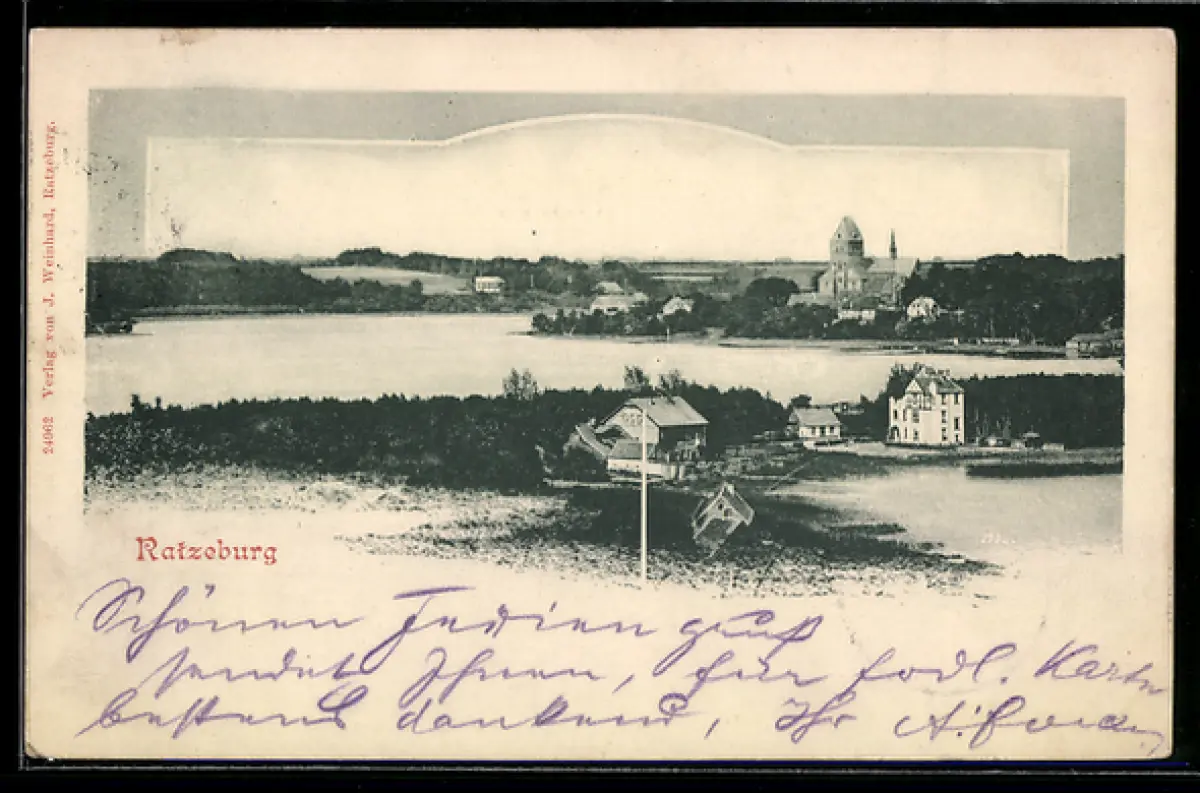 24962 Verlag von J. Weinhard, Ratzeburg.
Ratzeburg
Schönen Ferien gruß
sendet Ihnen, für
Karte
bestens dankend, Ihr A.